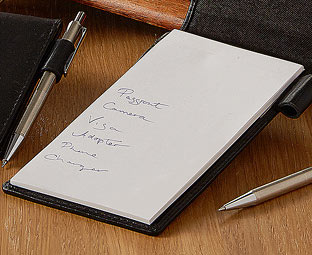 Passport
Camera
Visa
Adapter
Phone
Charger